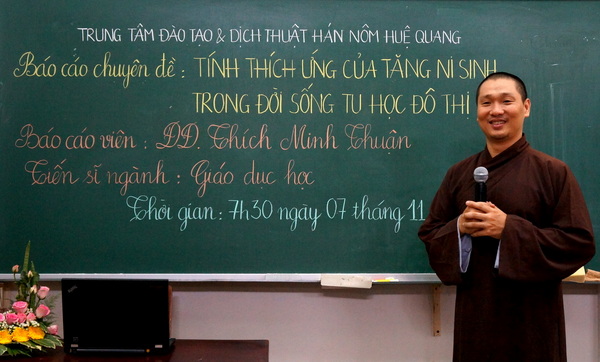 TRUNG TÂM ĐÀO TẠO & DỊCH THUẬT HÁN NÔM HUỆ QUANG
Báo cáo chuyên đề : TÍNH THÍCH ỨNG CỦA TĂNG NI SINH
TRONG ĐỜI SỐNG TU HỌC ĐÔ THỊ
Báo cáo viên : ĐĐ. Thích Minh Thuận
Tiến sĩ ngành : Giáo dục học
Thời gian : 7h30 ngày 07 tháng 11